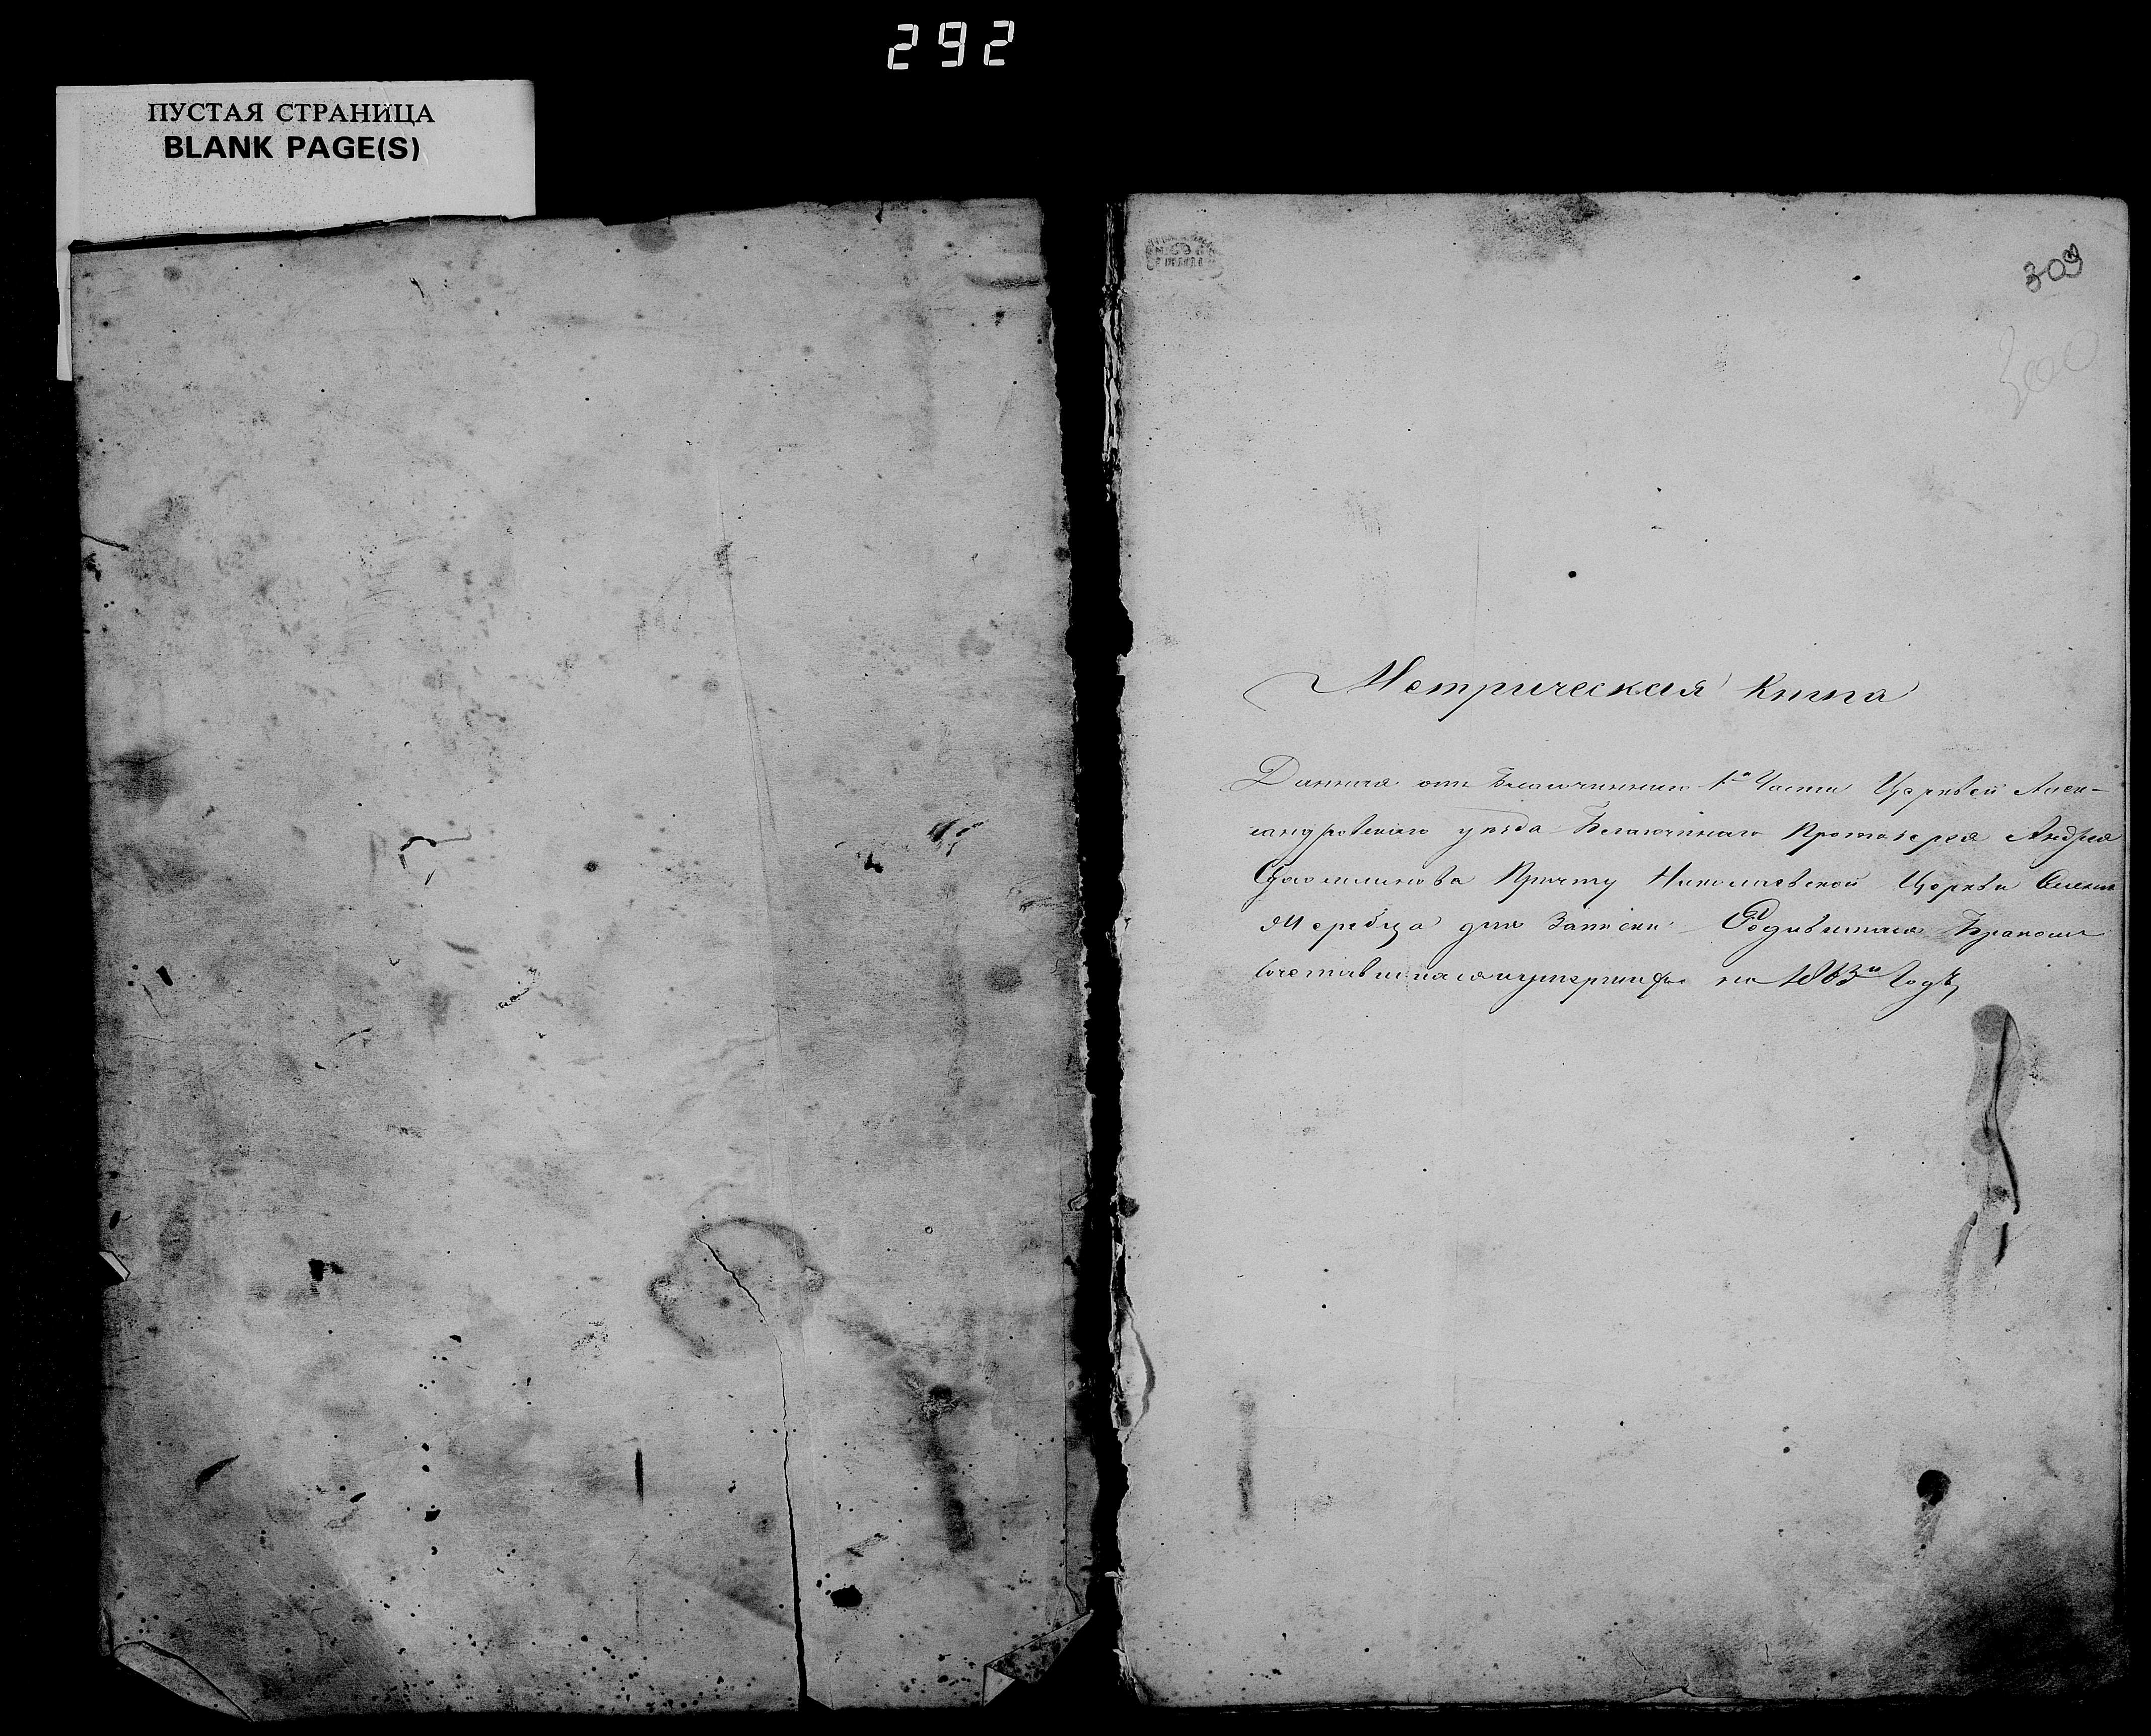 292
ПУСТАЯ СТРАНИЦА
BLANK PAGE(S)
303
300
Метрическая Книга
Данная отъ Благочиннаго 1й Части Церквей Алек-
сандровскаго уѣзда Благочиннаго Протоіерея Андрея
Причту Николаевской Церкви
для Записки Родившихся Бракомъ
сочетавшихся и умершихъ на 1863й Годъ,